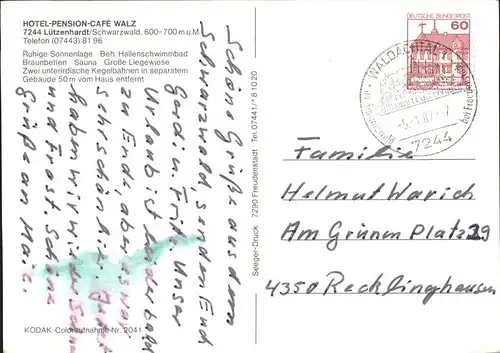 HOTEL-PENSION-CAFÉ WALZ
7244 Lützenhardt/Schwarzwald, 600-700 m ü.M.
Telefon (07443) 81 96
Ruhige Sonnenlage Beh. Hallenschwimmbad
Braunbetten Sauna Große Liegewiese
Zwei unterirdische Kegelbahnen in separatem
Gebäude 50 m vom Haus entfernt
Schöne Grüße aus dem
Schwarzwald senden Euch
Gerdi u. Fritz. Unser
Urlaub ist leider bald
zu Ende, aber es war
sehr schön hier. Jetzt
haben wir wieder Schnee
und Frost. Schöne
Grüße an
KODAK-Coloraufnahme Nr. 2041
Seeger-Druck 7290 Freudenstadt Tel. 07441/* 81020
DEUTSCHE BUNDESPOST
60
WALDACHTAL
bei Freudenstadt
7244
Familie
Helmut Warich
Am Grünen Platz 29
4350 Recklinghausen